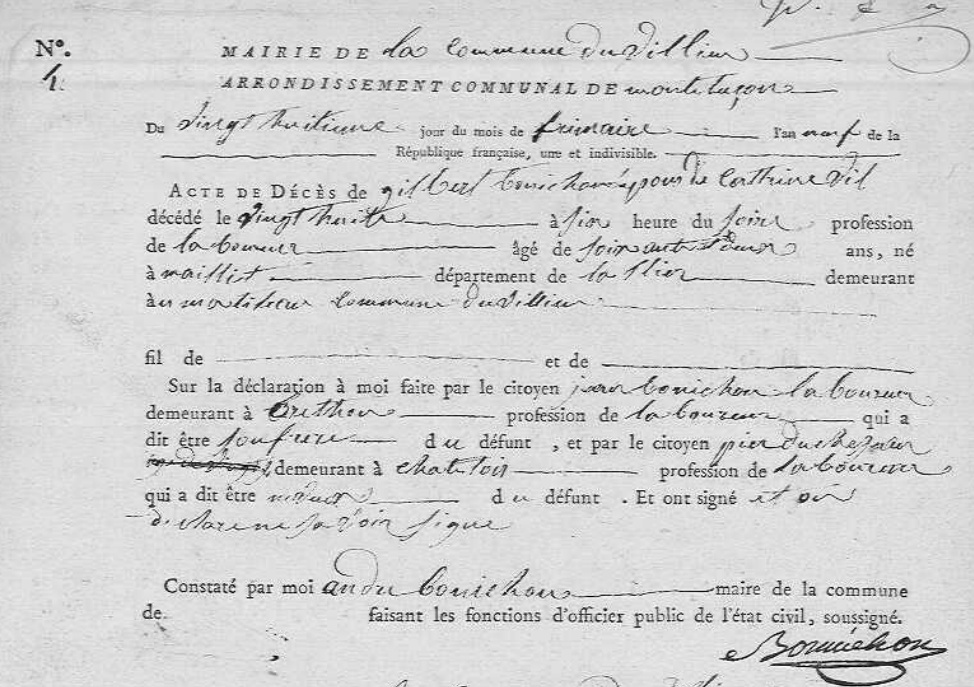 N°. MAIRIE DE la Commune du Villien
4. ARRONDISSEMENT COMMUNAL DE montluçon
Du vingt huitieme jour du mois de frimaire l'an neuf de la
République française, une et indivisible.
ACTE DE DÉCÈS de gilbert bonichon époux de Catherine vil
décédé le vingt huite à six heure du soire profession
de laboureur âgé de soixante ans, né
à maillit département de lallier demeurant
à Commune du villien
fil de et de
Sur la déclaration à moi faite par le citoyen jean bonichon laboureur
demeurant à Brethon profession de laboureux qui a
dit être son frere du défunt , et par le citoyen pier
demeurant à chatelois profession de laboureur
qui a dit être du défunt . Et ont signé et on
declare ne savoir signe
Constaté par moi andre bonichon maire de la commune
de faisant les fonctions d'officier public de l'état civil, soussigné.
Bonnichon